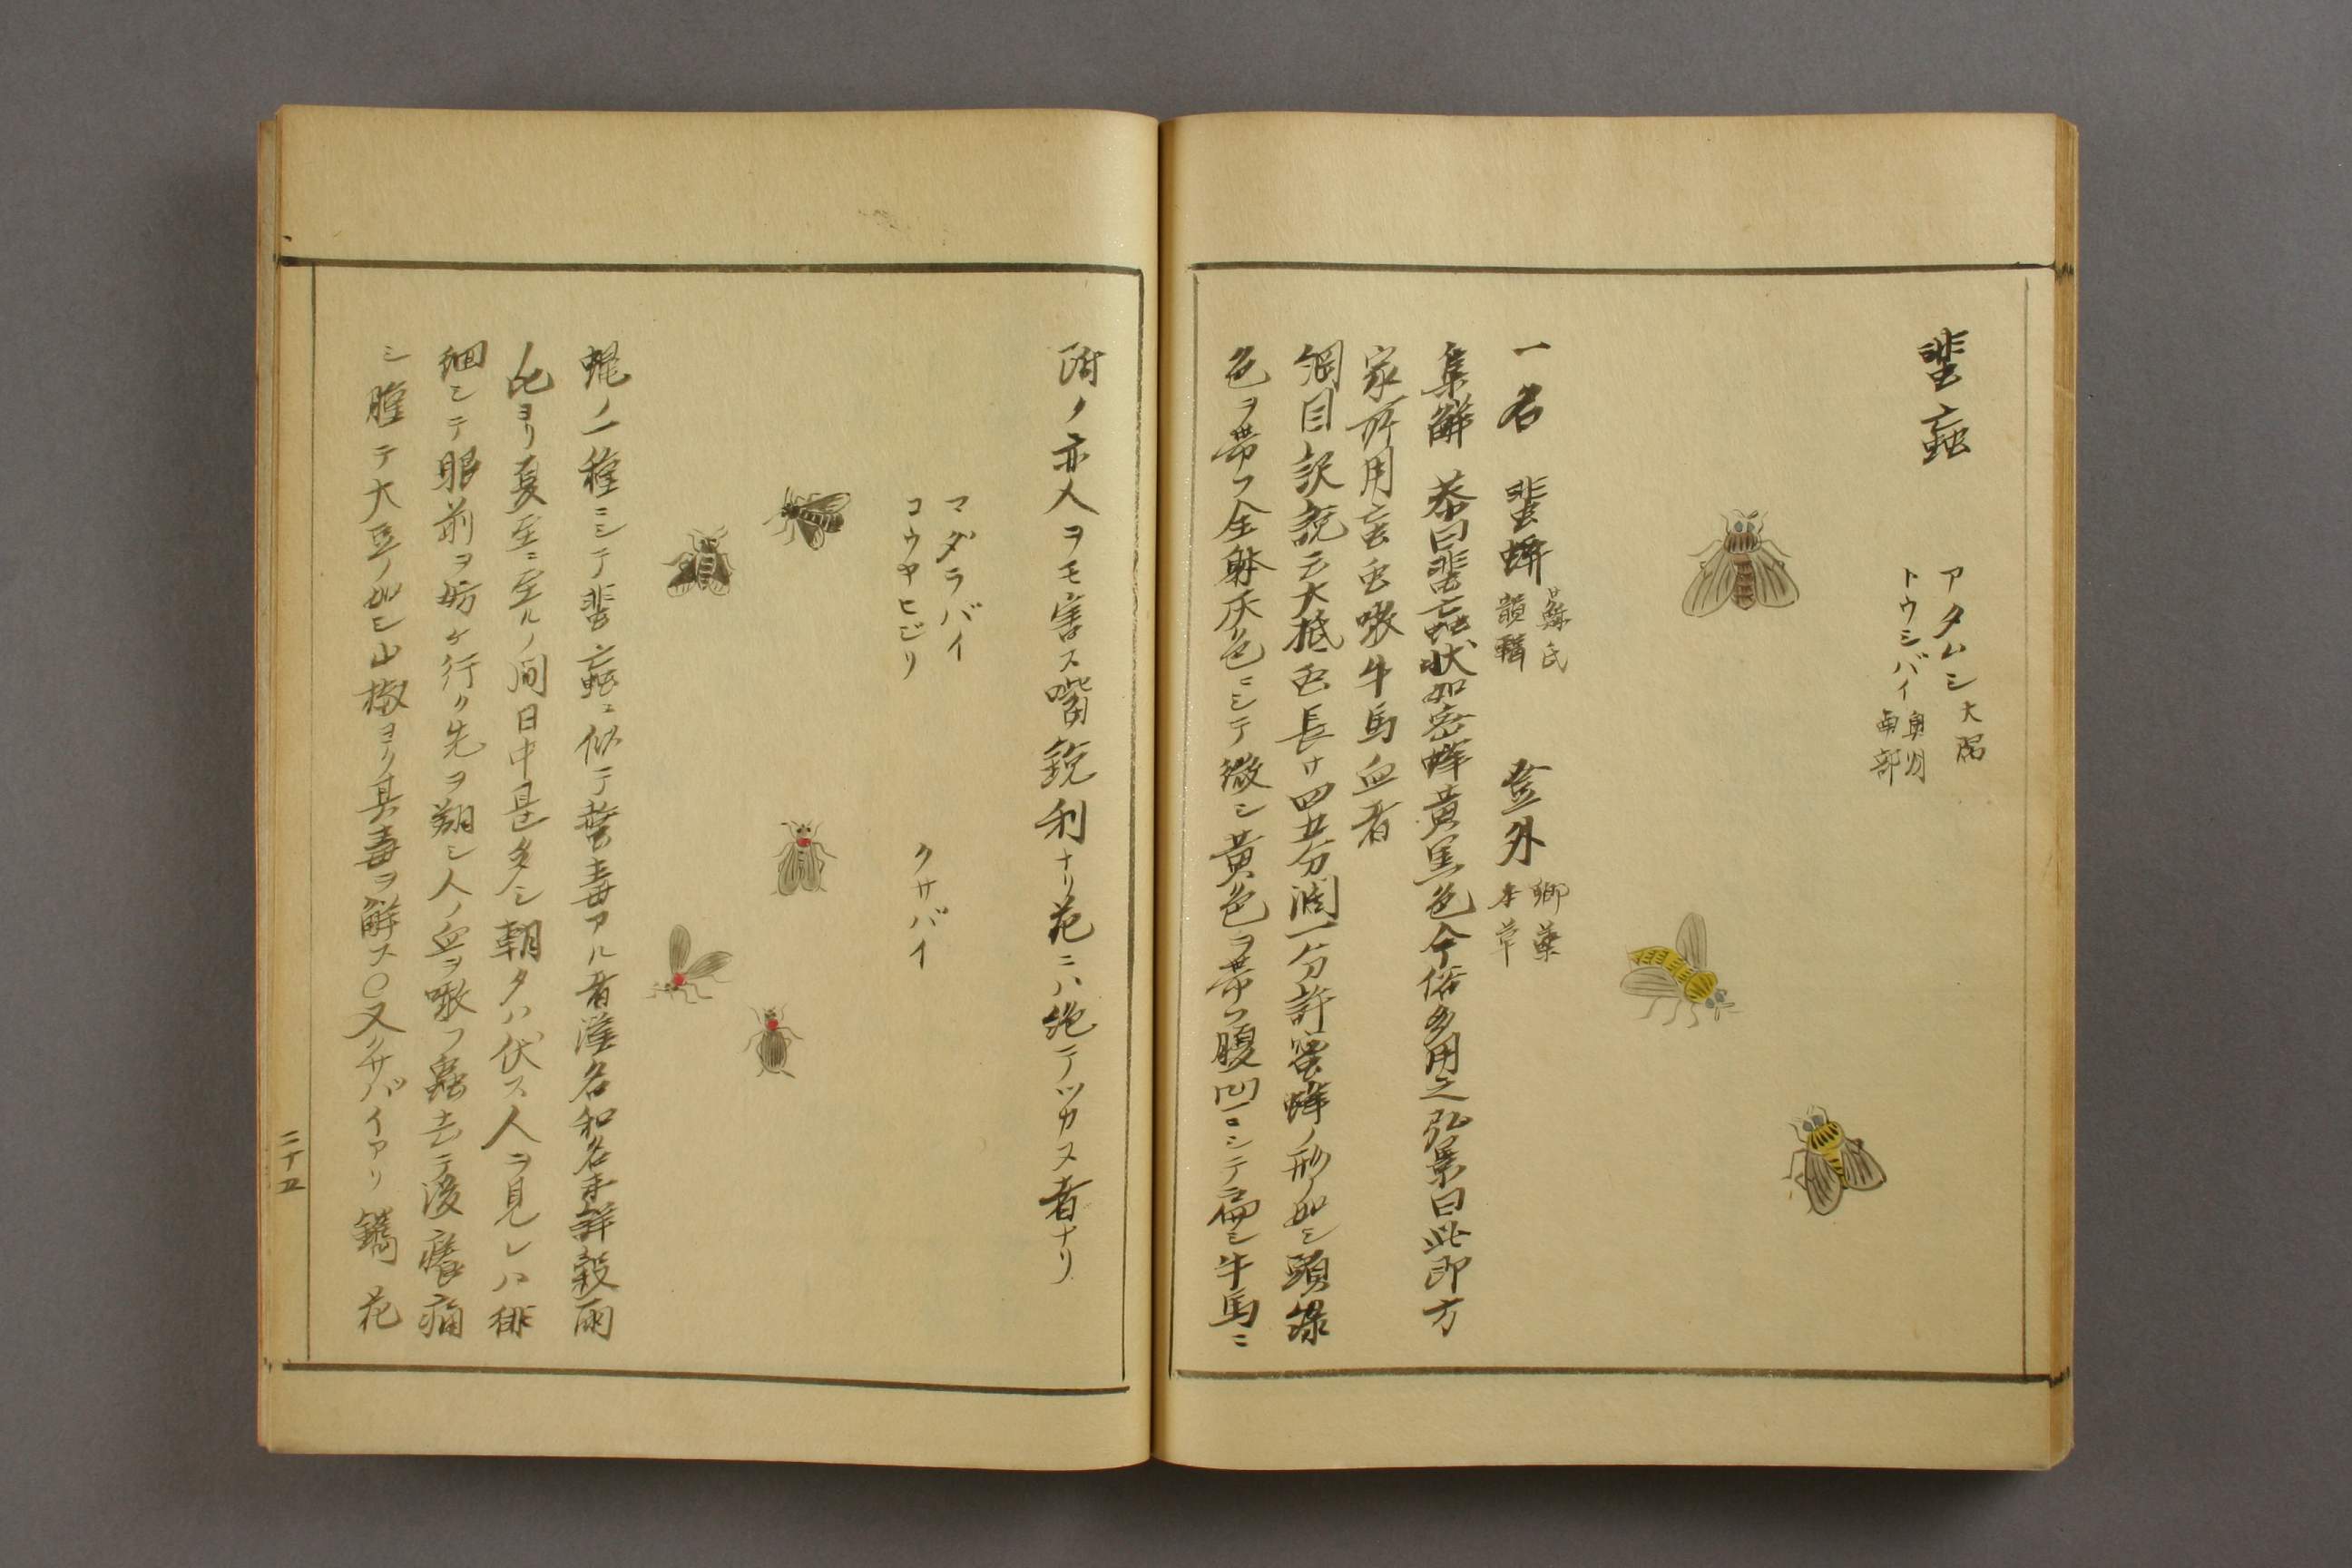 蜚蝱
アタムシ大隅
トウシバイ奥州南部
一名 蜚蜂蘇氏韻輯 登外郷薬本草
集觧 恭曰蜚蝱状如密蜂黄黒色今俗多用之弘景曰此即方
家所用䖟虫噉牛馬血者
綱目訳説云大抵䖝長ケ四五分濶一分許蜜蜂ノ形ノ如シ頭緑
色ヲ帯フ全躰灰色ニシテ微シ黄色ヲ帯フ腹凹ニシテ扁シ牛馬ニ
附ノ亦人ヲモ害ス嘴鋭利ナリ花ニハ絶テツカヌ者ナリ
マダラバイ
コウヤヒジリ
クサバイ
蝿ノ一種ニシテ蜚蝱ニ似テ螫毒アル者漢名和名未詳穀雨
比ヨリ夏至ニ至ルノ間日中甚多シ朝夕ハ伏ス人ヲ見レハ徘
細シテ眼前ヲ妨ケ行ク先ヲ翔シ人ノ血ヲ噉フ蟲去テ後癢痛
シ腫テ大豆ノ如シ山椒ヨリ其毒ヲ觧ス〇又クサバイアリ 花
二十五